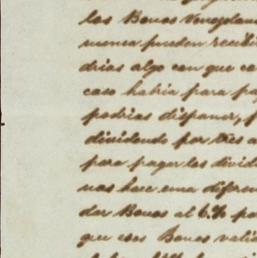 los Bonos Venezolan
nunca pueden recibi
drias algo con que ca
caso habia para pa
podrias disponer, p
dividendo por tres a
para pagar los divid
nos hace una diferen
dar Bonos al 6% po
que esos Bonos valia